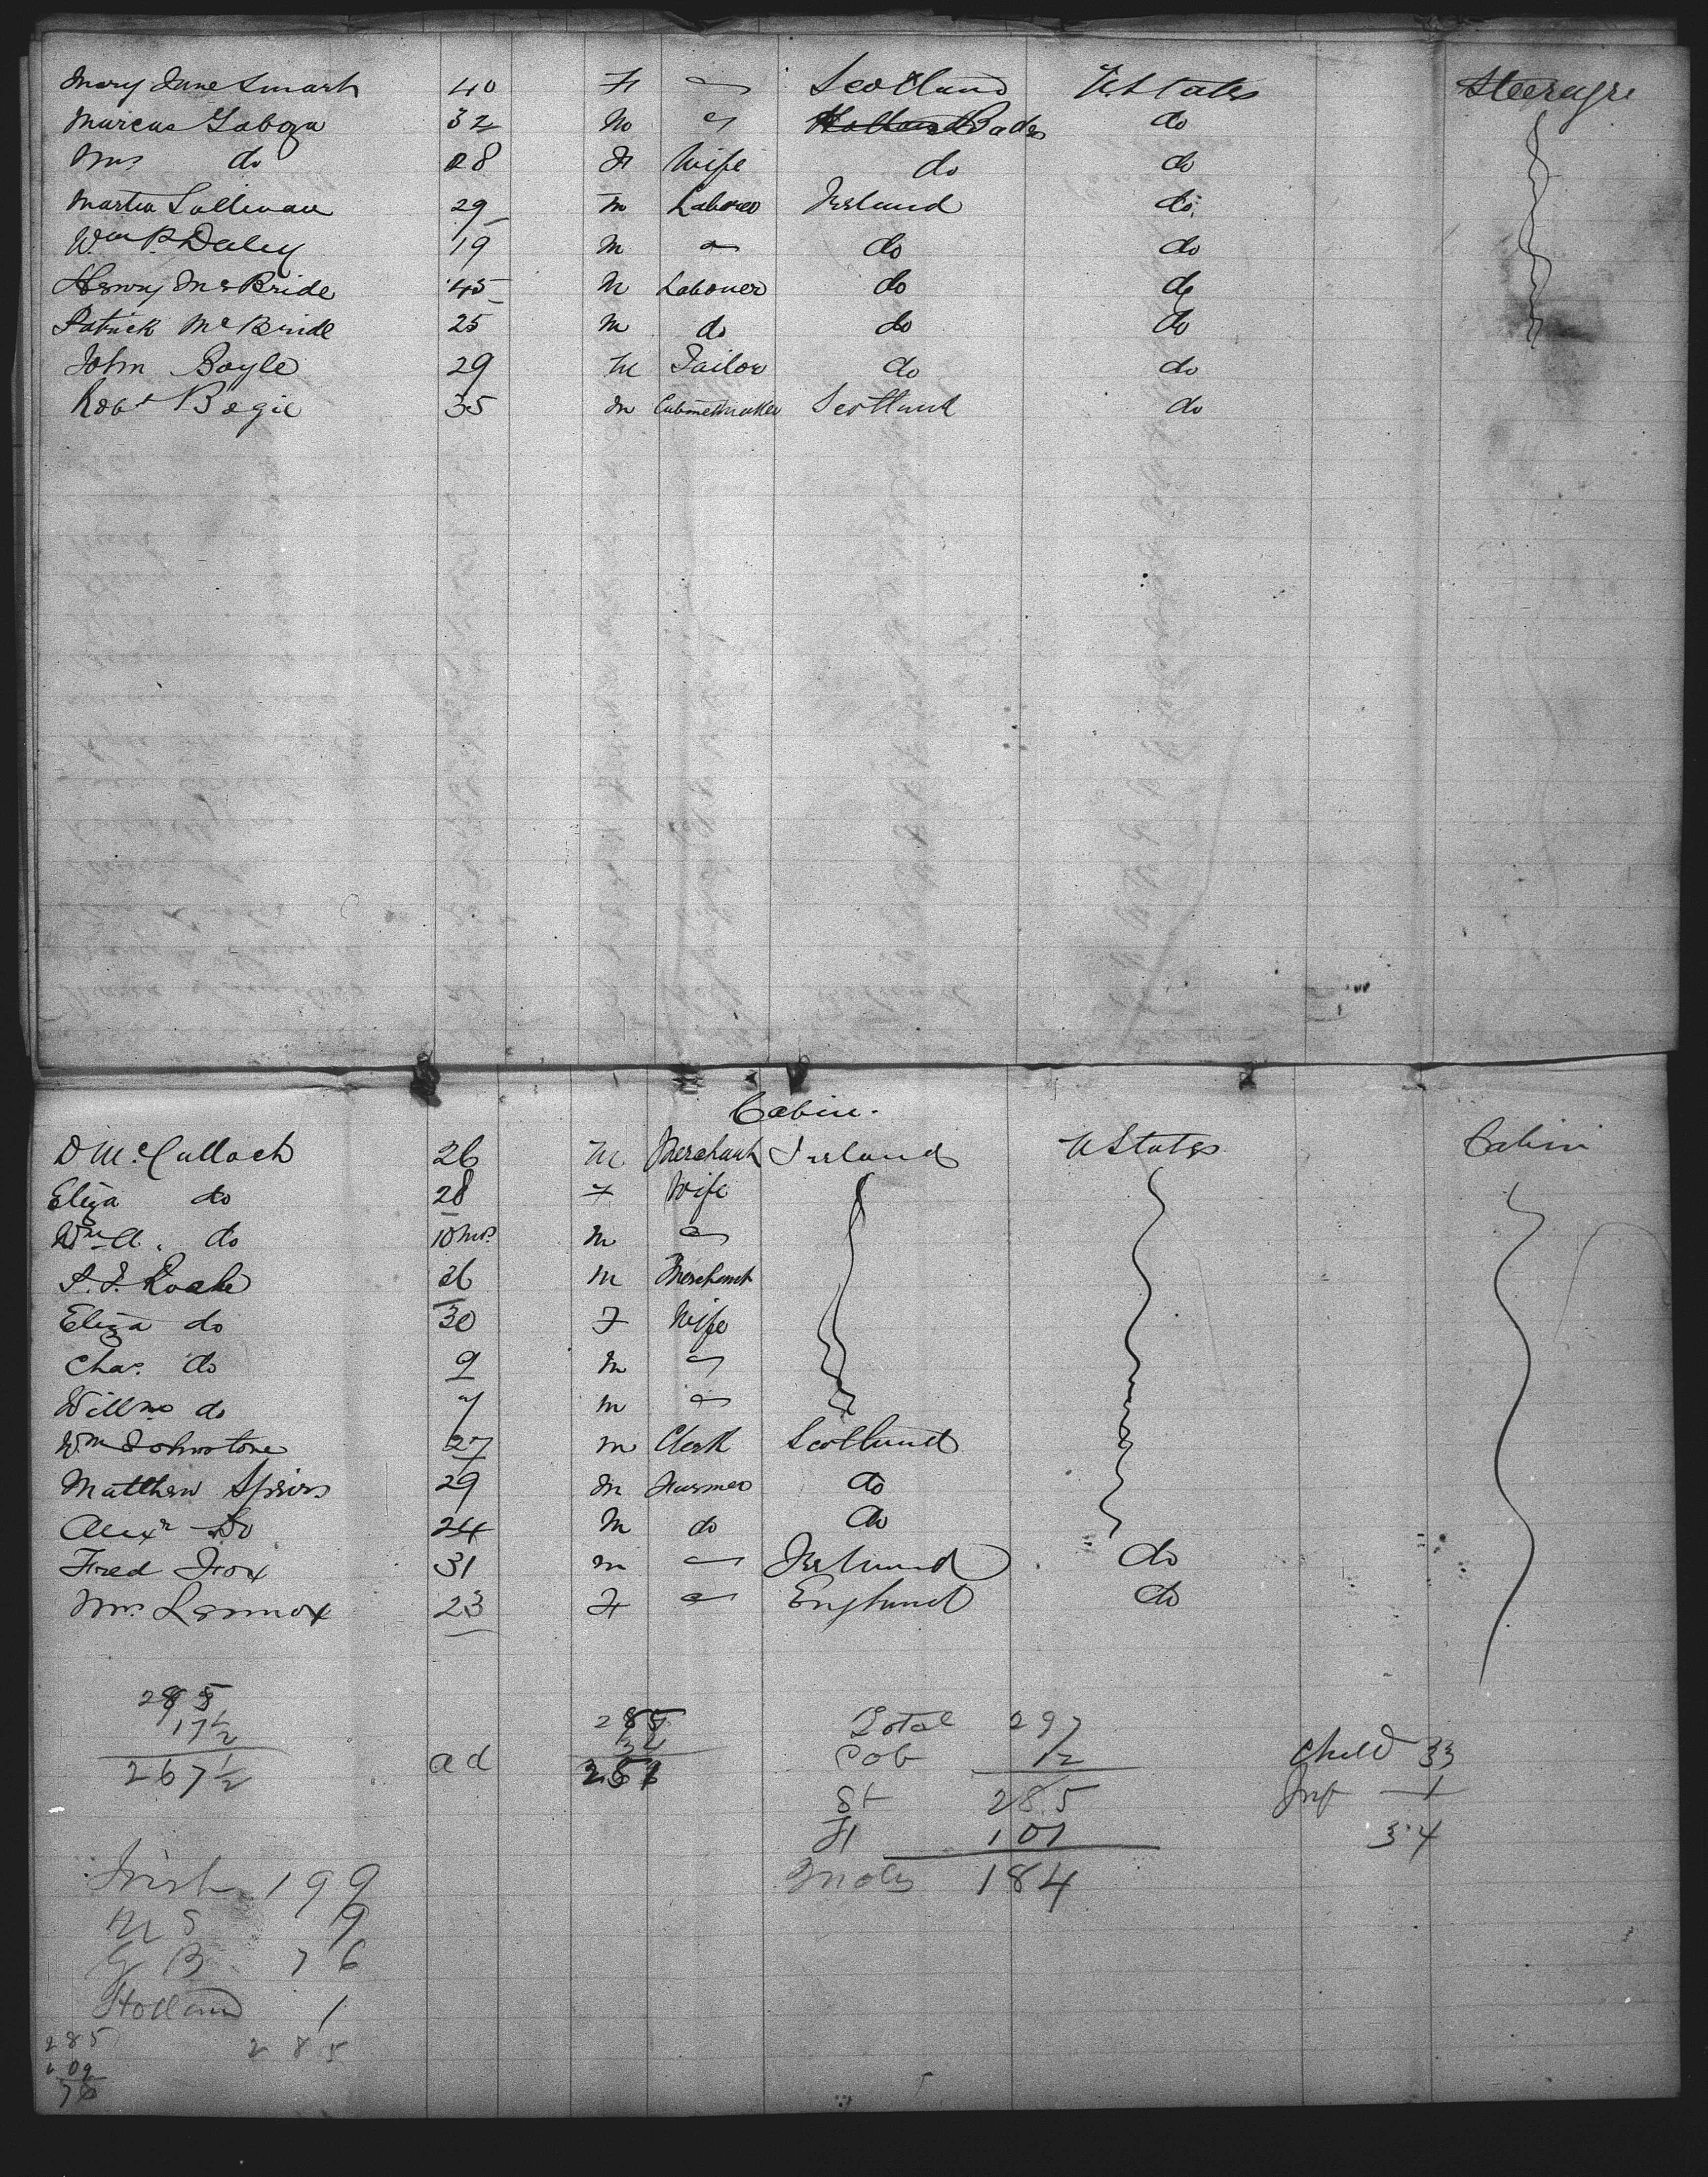 Mary Jane Smart 40 F " Scotland U States Steerage
Marcus 32 M " Holland Baden do
Mrs do 28 F Wife do do
Martin Sullivan 29 M Laborer Ireland do
Wm P. Daley 19 M " do do
Henry McBride 45 M Labourer do do
Patrick McBride 25 M do do do
John Boyle 29 M Tailor do do
Robt Bogie 35 M Cabinetmaker Scotland do
Cabin.
D McCulloch 26 M Merchant Ireland U States Cabin
Eliza do 28 F Wife
Wm A. do 10 mos M "
Roake 26 M Merchant
Eliza do 30 F Wife
Chas. do 9 M "
Willm do 7 M "
Wm Johnstone 27 M Clerk Scotland
Matthew Spiers 29 M Farmer do
Alexr Do 24 M do do
Fred Fox 31 M " Ireland do
Mrs Lennox 23 F " England do
285
17½
267½
ad
285
Total 297
Cab 12
St 285
F 101
Males 184
Child 33
Inf 1
34
Irish 199
U S 9
G B 76
Holland 1
285
285
209
76